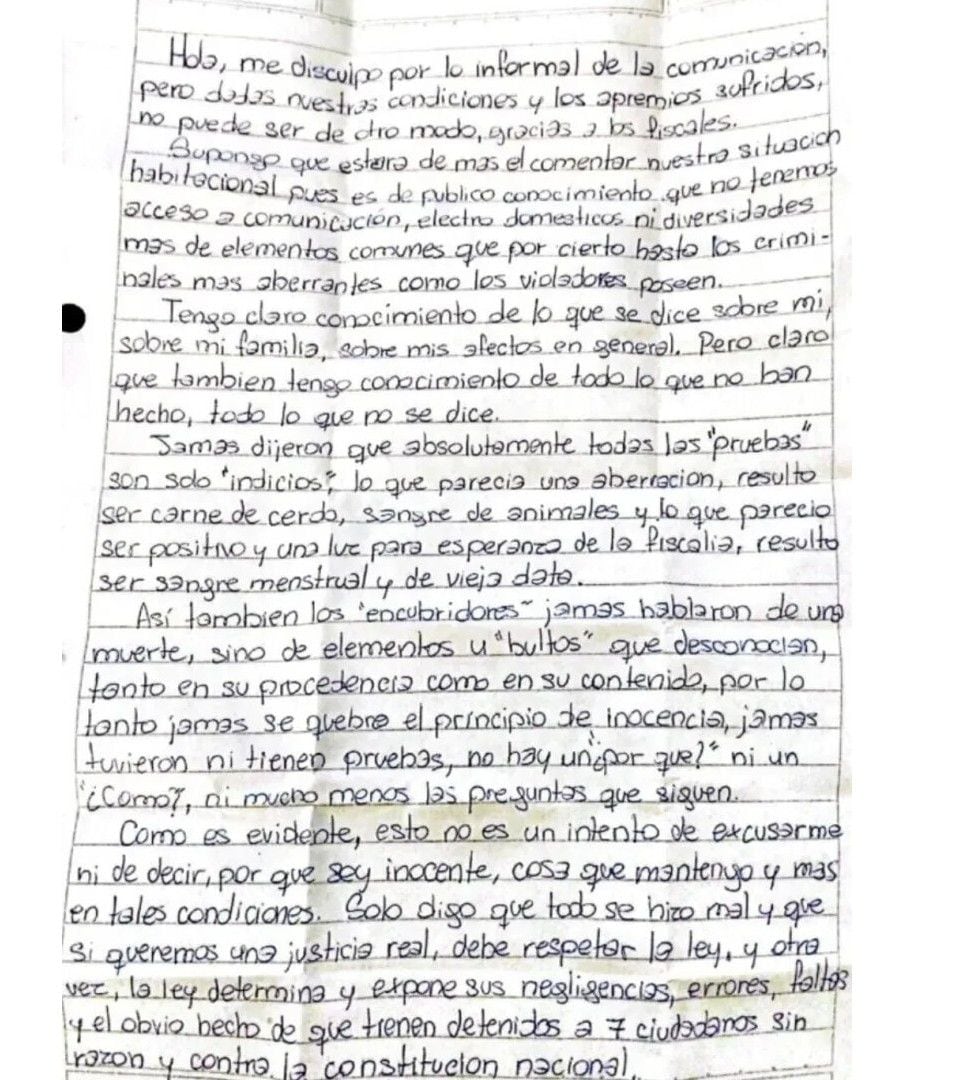 Hola, me disculpo por lo informal de la comunicación,
pero dadas nuestras condiciones y los apremios sufridos,
no puede ser de otro modo, gracias a los fiscales.
Supongo que estara de mas el comentar nuestra situacion
habitacional pues es de publico conocimiento que no tenemos
acceso a comunicación, electro domesticos ni diversidades
mas de elementos comunes que por cierto hasta los crimi-
nales mas aberrantes como los violadores poseen.
Tengo claro conocimiento de lo que se dice sobre mi,
sobre mi familia, sobre mis afectos en general. Pero claro
que tambien tengo conocimiento de todo lo que no han
hecho, todo lo que no se dice.
Jamas dijeron que absolutamente todas las "pruebas"
son solo "indicios", lo que parecia una aberracion, resulto
ser carne de cerdo, sangre de animales y lo que parecio
ser positivo y una luz para esperanza de la fiscalia, resulto
ser sangre menstrual y de vieja data.
Así tambien los "encubridores" jamas hablaron de una
muerte, sino de elementos u "bultos" que desconocian,
tanto en su procedencia como en su contenido, por lo
tanto jamas se quebro el principio de inocencia, jamas
tuvieron ni tienen pruebas, no hay un "¿por que?" ni un
"¿Como?, ni mucho menos las preguntas que siguen.
Como es evidente, esto no es un intento de excusarme
ni de decir, por que soy inocente, cosa que mantengo y mas
en tales condiciones. Solo digo que todo se hizo mal y que
si queremos una justicia real, debe respetar la ley, y otra
vez, la ley determina y expone sus negligencias, errores, faltas
y el obvio hecho de que tienen detenidos a 7 ciudadanos sin
razon y contra la constitucion nacional.